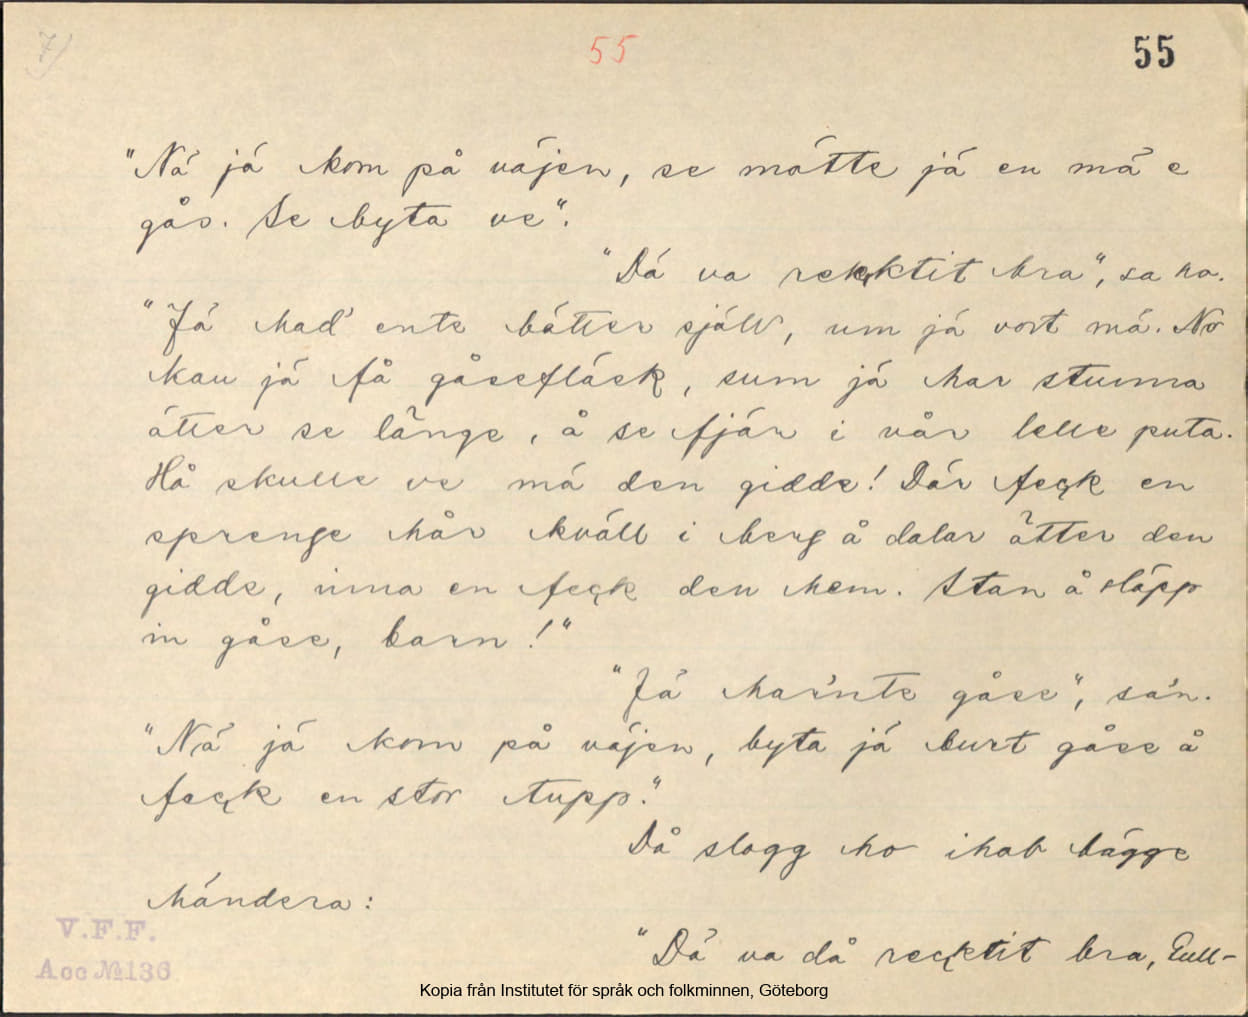 7)
55
55
"Ná já kom på väjen, se mátte já en má e
gås. Se byta ve".
"Dá va recktit bra", sa ho.
"Já had' ente bátter själv, um já vort má. No
kan já få gåsefläsk, sum já har stunna
átter se länge, å se fjär i vår lelle puta.
Hå skulle ve má den gidde! Där feck en
sprenge hår kväll i berg å dalar átter den
gidde, inna en feck den hem. Stan å släpp
in gåse, barn!"
"Já har'nte gåse", sa'n.
"Ná já kom på väjen, byta já burt gåse å
feck en stor tupp."
Då slogg ho ihab bägge
händera:
"Dá va då recktit bra, Gull-
V.F.F.
Acc № 136
Kopia från Institutet för språk och folkminnen, Göteborg